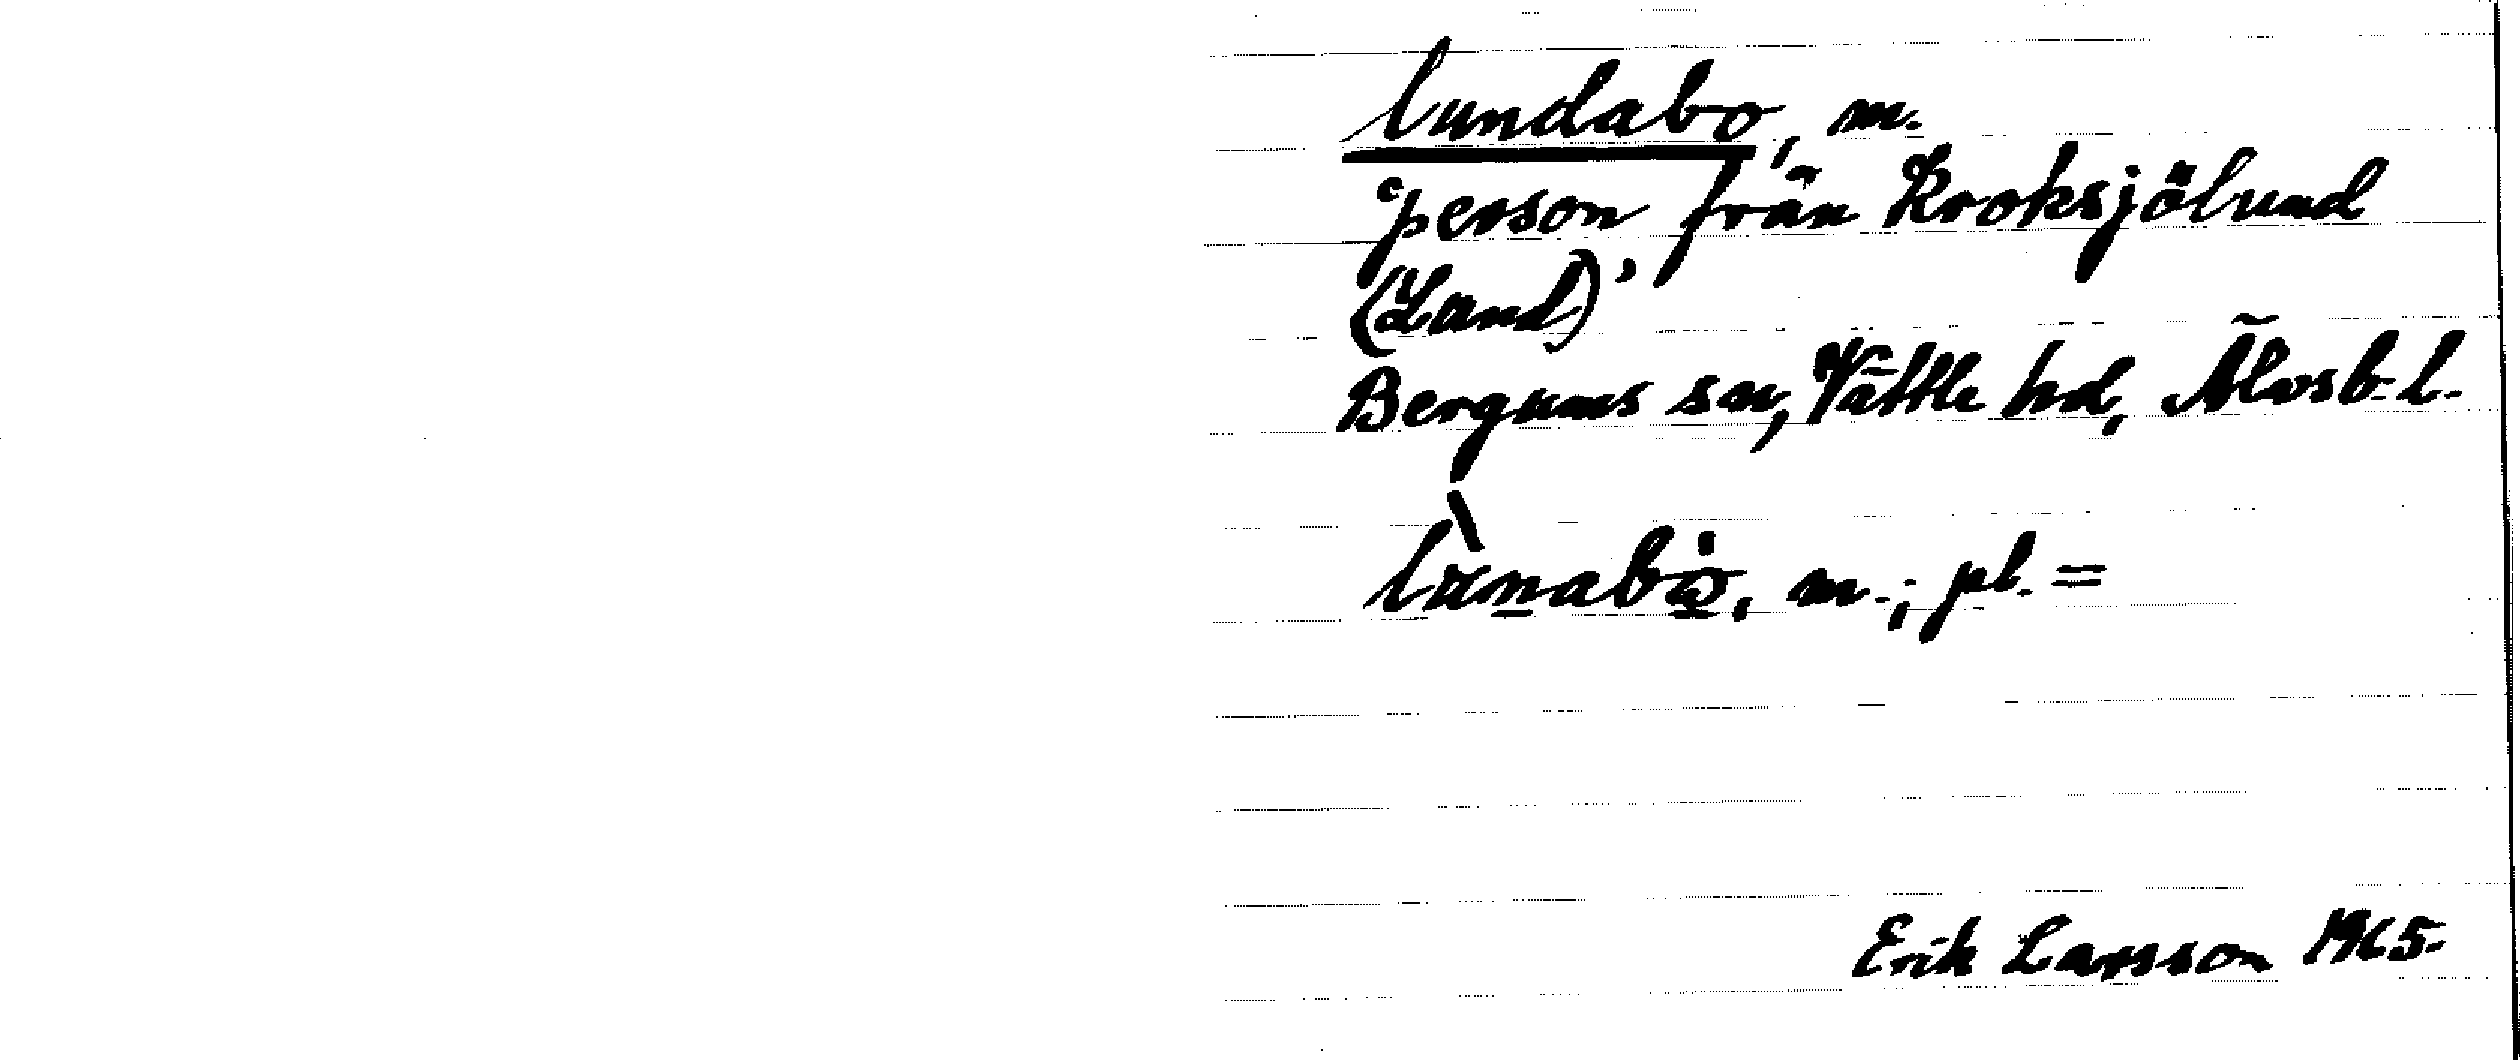 lundabo, m.
‘person från Kroksjölund
(Lund)’
Bergums sn, Vättle hd, Älvsb. l.
lùnabo, m.; pl. =
Erik Larsson 1965